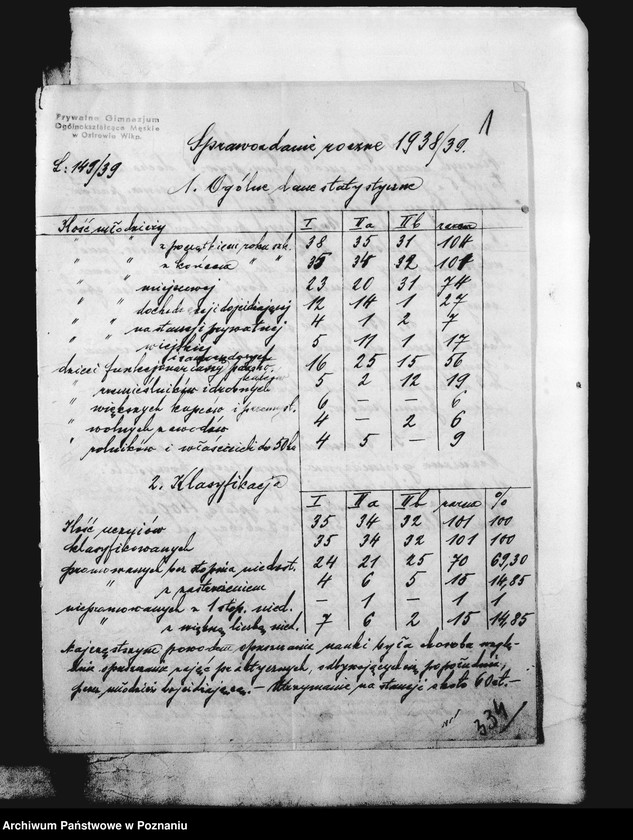 Prywatne Gimnazjum
Ogólnokształcące Męskie
w Ostrowie Wlkp.
1
Sprawozdanie roczne 1938/39.
L: 149/39
1. Ogólne dane statystyczne
Ilość młodzieży I IIa IIb razem
" " z początkiem roku szk. 38 35 31 104
" " z końcem " " 35 34 32 101
" " miejscowej 23 20 31 74
" " dochodzącej i dojeżdżającej 12 14 1 27
" " na stancji prywatnej 4 1 2 7
" " wiejskiej 5 11 1 17
dzieci funkcjonariuszy państw. i samorządowych 16 25 15 56
" rzemieślników i drobnych kupców 5 2 12 19
" większych kupców i przemysł. 6 — — 6
" wolnych zawodów 4 — 2 6
" rolników i właścicieli do 50 ha 4 5 — 9
2. Klasyfikacja
I IIa IIb razem %
Ilość uczniów 35 34 32 101 100
klasyfikowanych 35 34 32 101 100
promowanych bez stopnia niedost. 24 21 25 70 69,30
" z zastrzeżeniem 4 6 5 15 14,85
niepromowanych z 1 stop. nied. — 1 — 1 1
" z większą liczbą nied. 7 6 2 15 14,85
Najczęstszym powodem opuszczania nauki była choroba wzglę-
dnie opuszczanie zajęć praktycznych, odbywających się popołudniu,
przez młodzież dojeżdżającą. — Utrzymanie na stancji około 60 zł. —
334
Archiwum Państwowe w Poznaniu